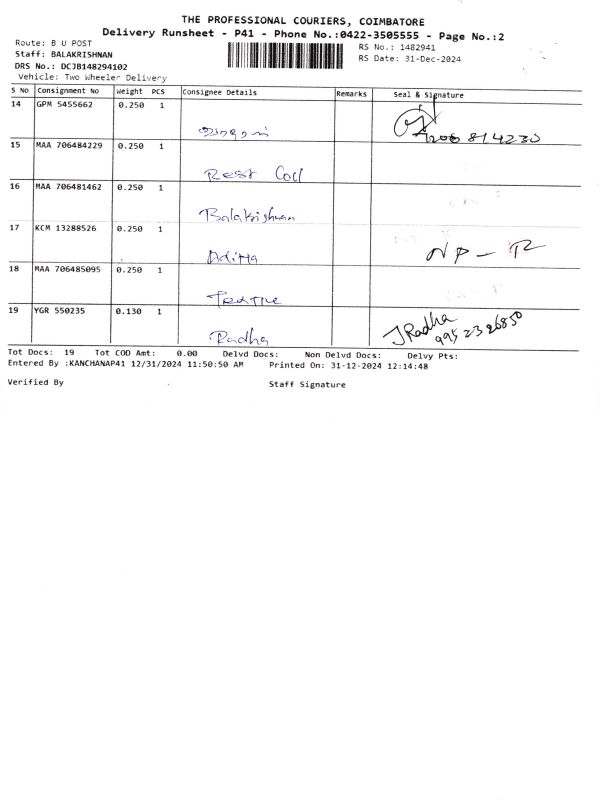 THE PROFESSIONAL COURIERS, COIMBATORE
Delivery Runsheet - P41 - Phone No.:0422-3505555 - Page No.:2
Route: B U POST
Staff: BALAKRISHNAN
DRS No.: DCJB148294102
Vehicle: Two Wheeler Delivery
RS No.: 1482941
RS Date: 31-Dec-2024
S No Consignment No Weight PCS Consignee Details Remarks Seal & Signature
14 GPM 5455662 0.250 1
15 MAA 706484229 0.250 1
Rest Coll
16 MAA 706481462 0.250 1
Balakrishnan
17 KCM 13288526 0.250 1
NP - R
18 MAA 706485095 0.250 1
19 YGR 550235 0.130 1
Radha JRadha
9952326850
Tot Docs: 19 Tot COD Amt: 0.00 Delvd Docs: Non Delvd Docs: Delvy Pts:
Entered By :KANCHANAP41 12/31/2024 11:50:50 AM Printed On: 31-12-2024 12:14:48
Verified By Staff Signature